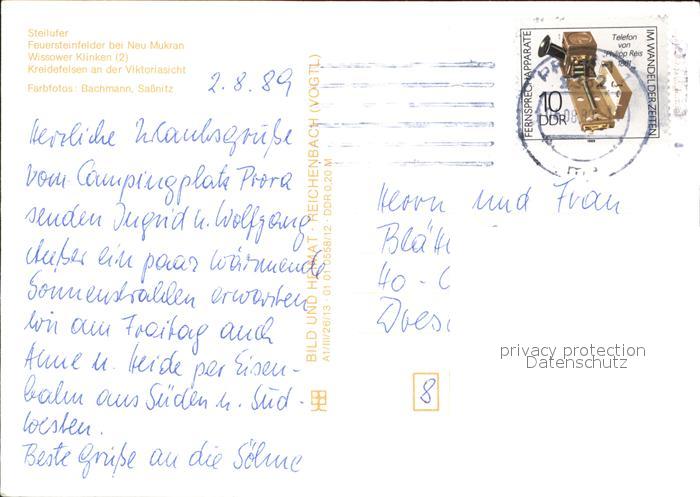 Steilufer
Feuersteinfelder bei Neu Mukran
Wissower Klinken (2)
Kreidefelsen an der Viktoriasicht
Farbfotos: Bachmann, Saßnitz
2.8.89
Herzliche Urlaubsgrüße
vom Campingplatz Prora
senden Ingrid u. Wolfgang
Außer ein paar wärmende
Sonnenstrahlen erwarten
wir am Freitag auch
Anne u. Heide per Eisen-
bahn aus Süden u. Süd-
westen.
Beste Grüße an die Söhne
BILD UND HEIMAT · REICHENBACH (VOGTL)
A1/III/26/13 · 01 01 0558/12 · DDR 0,20 M
FERNSPRECHAPPARATE
IM WANDEL DER ZEITEN
Telefon
von
Philipp Reis
1861
10
DDR
Herrn und Frau
Blä
40 -
Dres
8
privacy protection
Datenschutz